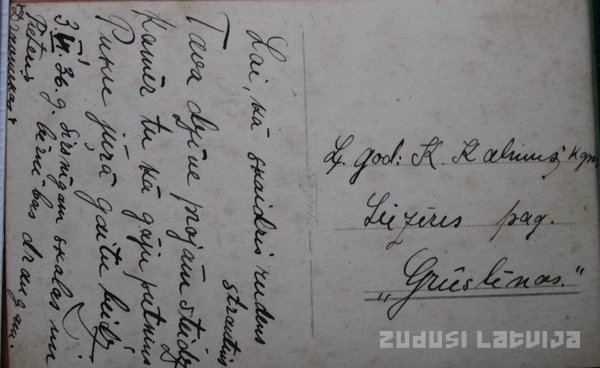 Lai, kā skaidris rudens
strautiņš
Tava dzīve projām steidz
Kamēr tu kā gāju putniņš
Puķu jūrā gaitu beidz
3.VI.36.g. Sirsnīgam skolas un
Pēteris bērnības draugam.
Ļ. god. K. Kalniņš kgm
Liezēres pag.
„Grūslēnas."
ZUDUSI LATVIJA